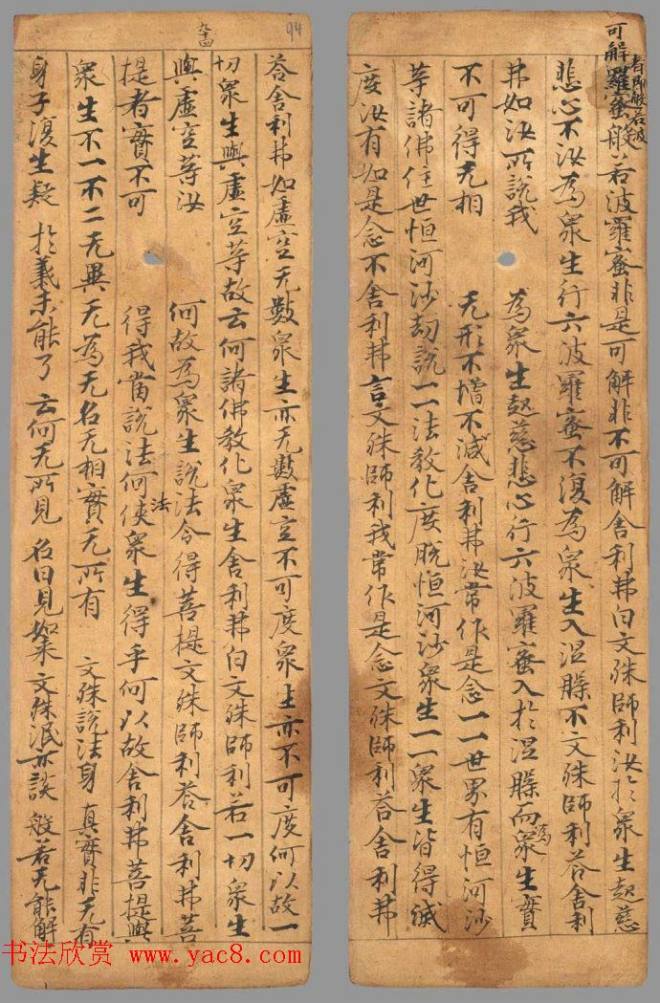 可解羅蜜般若波羅蜜非是可解非不可解舍利弗白文殊師利汝於衆生起慈
者即般若波
悲心不汝為衆生行六波羅蜜不復為衆生入涅槃不文殊師利荅舍利
弗如汝所說我 為衆生起慈悲心行六波羅蜜入於涅槃而衆生實
為
不可得无相 无形不增不減舍利弗汝常作是念一一世界有恒河沙
等諸佛住世恒河沙劫說一一法教化度脫恒河沙衆生一一衆生皆得滅
度汝有如是念不舍利弗言文殊師利我常作是念文殊師利荅舍利弗
94
九十四
荅舍利弗如虛空无數衆生亦无數虛空不可度衆生亦不可度何以故一
切衆生與虛空等故云何諸佛教化衆生舍利弗白文殊師利若一切衆生
與虛空等汝 何故為衆生說法令得菩提文殊師利荅舍利弗菩
提者實不可 得我當說法何使衆生得乎何以故舍利弗菩提與
法
衆生不一不二无異无為无名无相實无所有 文殊說法身 真實非无有
身子復生疑 於義未能了 云何无所見 名曰見如來 文殊泯亦談 般若无能解
书法欣赏 www.yac8.com